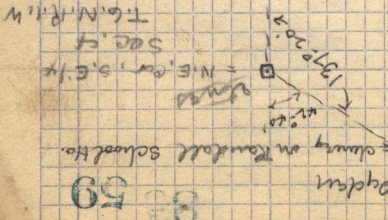 59
Ogden
chimney on Randall School Ho.
42°-40'
137°-20'
= N.E. Cor. S.E. 1/4
Sec. 4
T. 6. N. R. 1. W